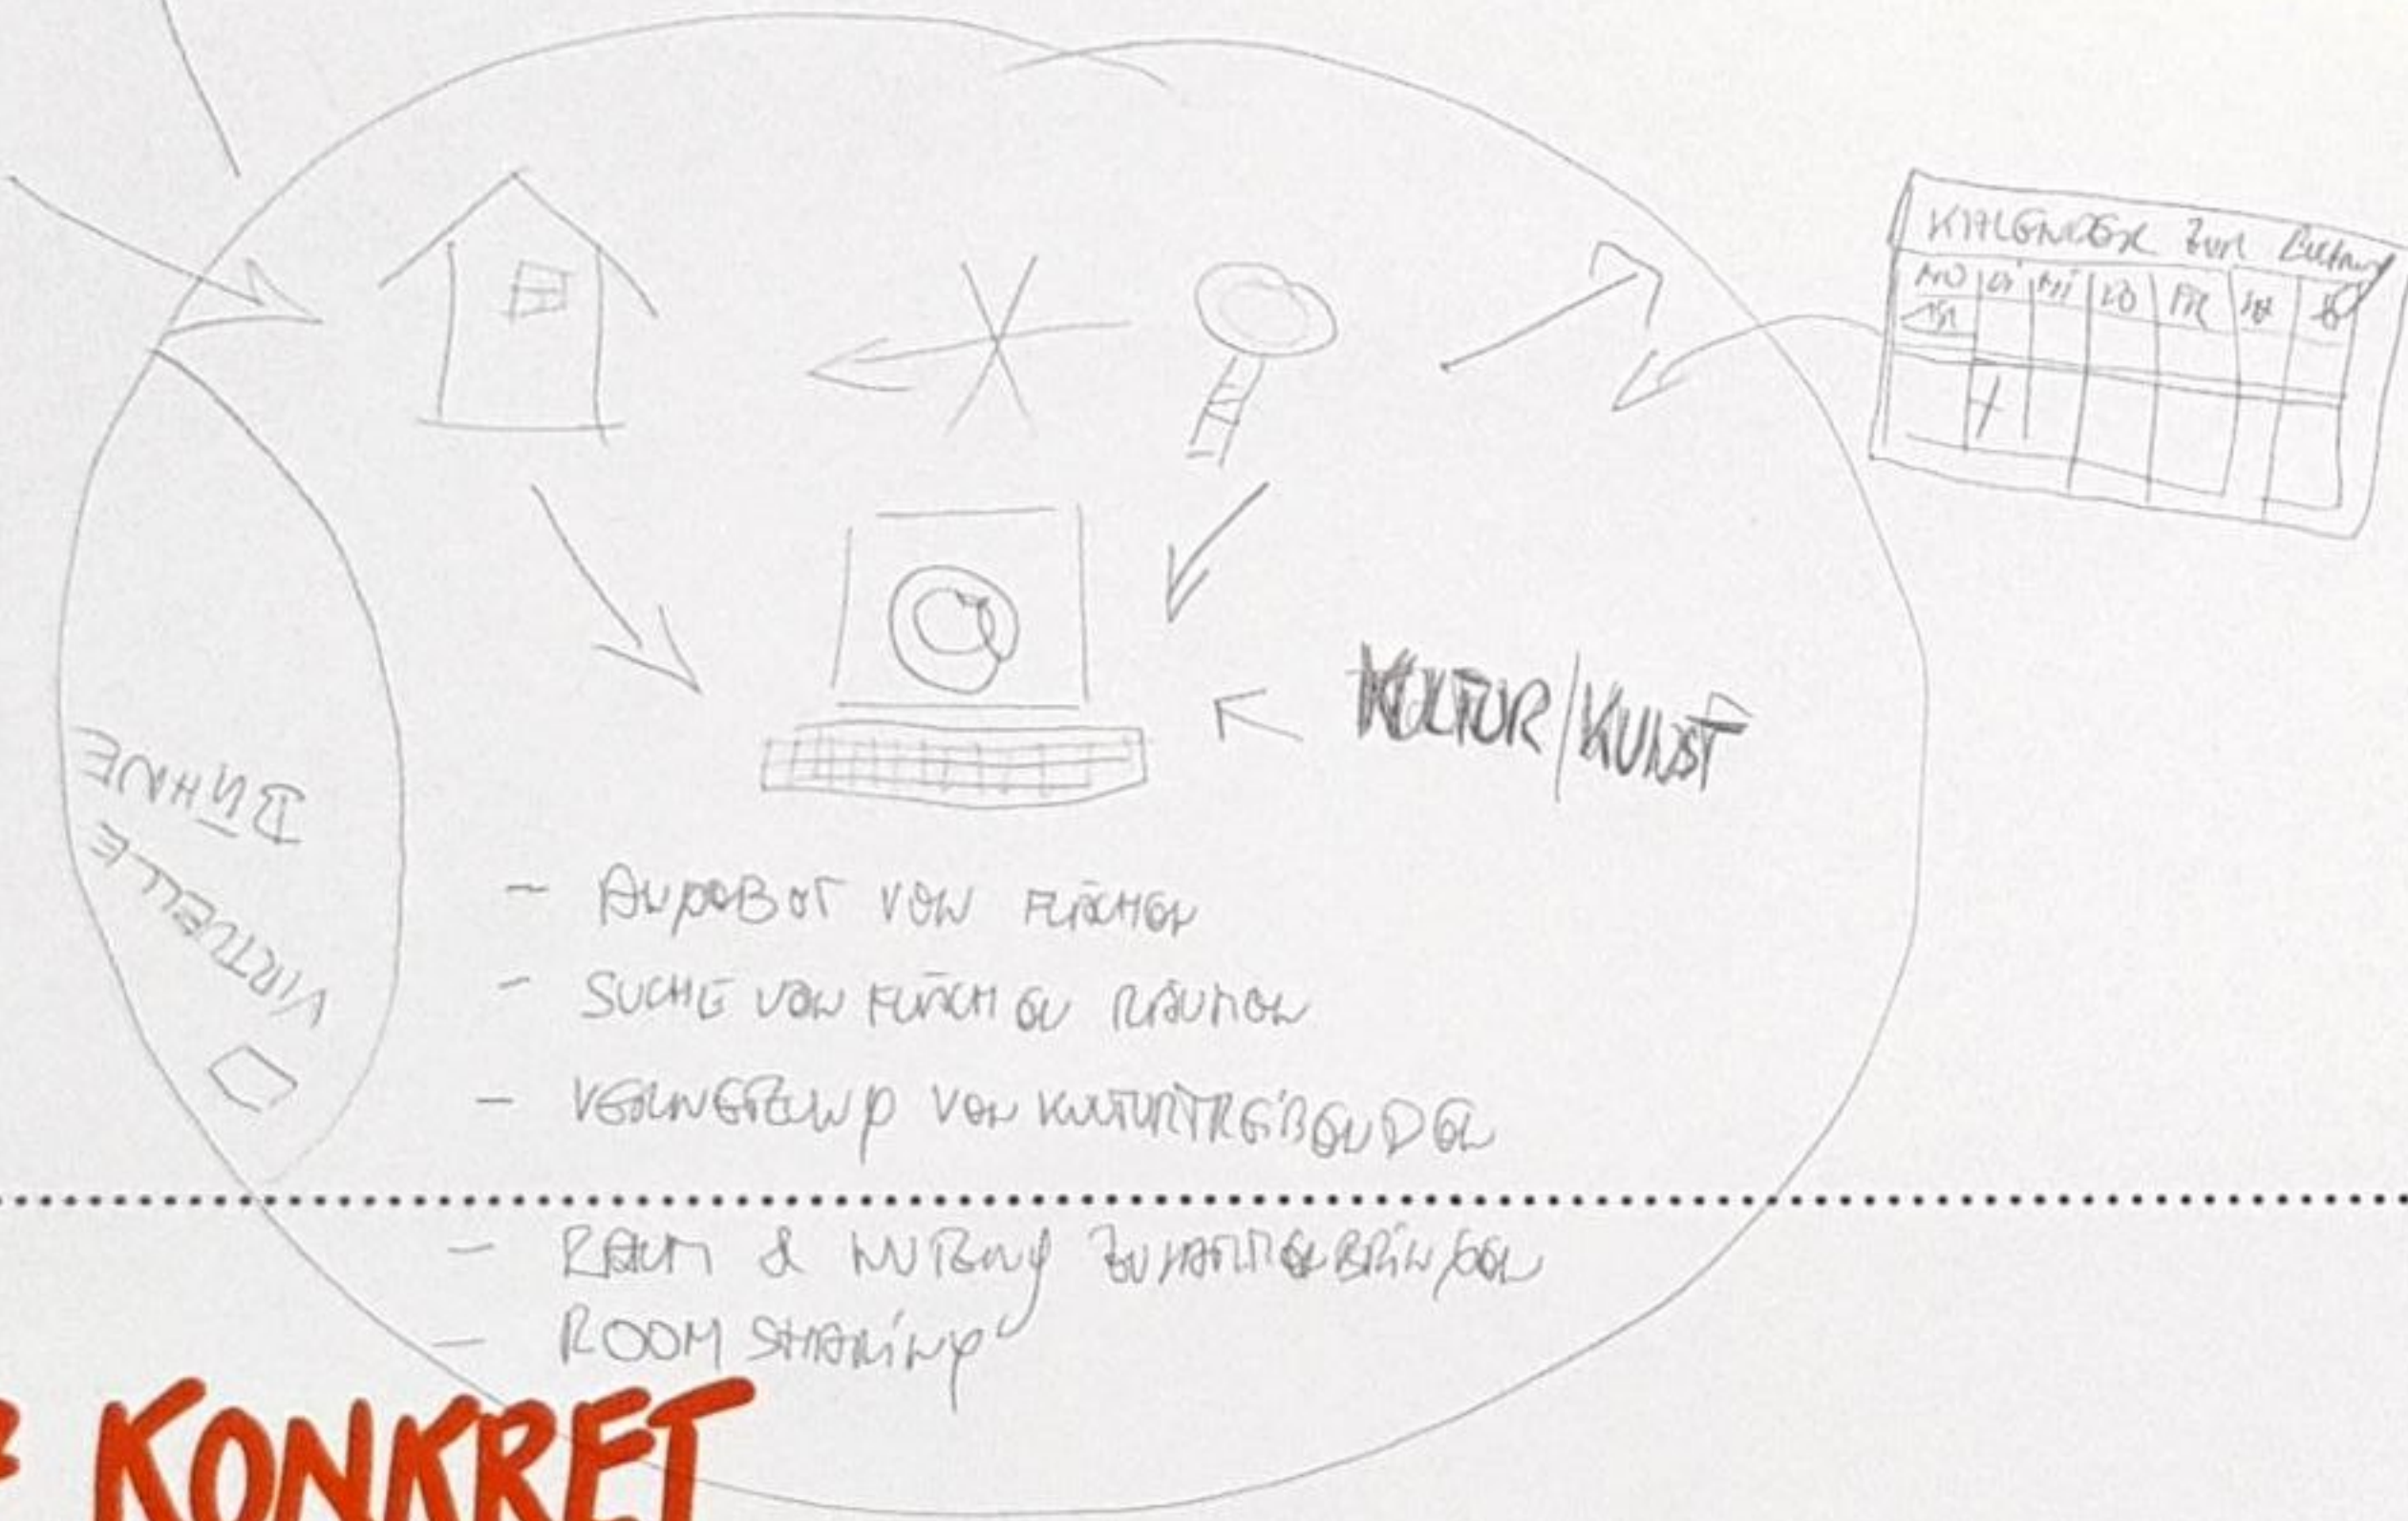 KALENDER ZUR Buchung
MO DI MI DO FR SA SO
KULTUR/KUNST
VIRTUELLE
BÜHNE
- ANGEBOT VON FLÄCHEN
- SUCHE VON FLÄCHEN RÄUMEN
- VERNETZUNG VON KULTURTREIBENDEN
- RAUM & NUTZUNG ZUSAMMENBRINGEN
- ROOM SHARING
KONKRET